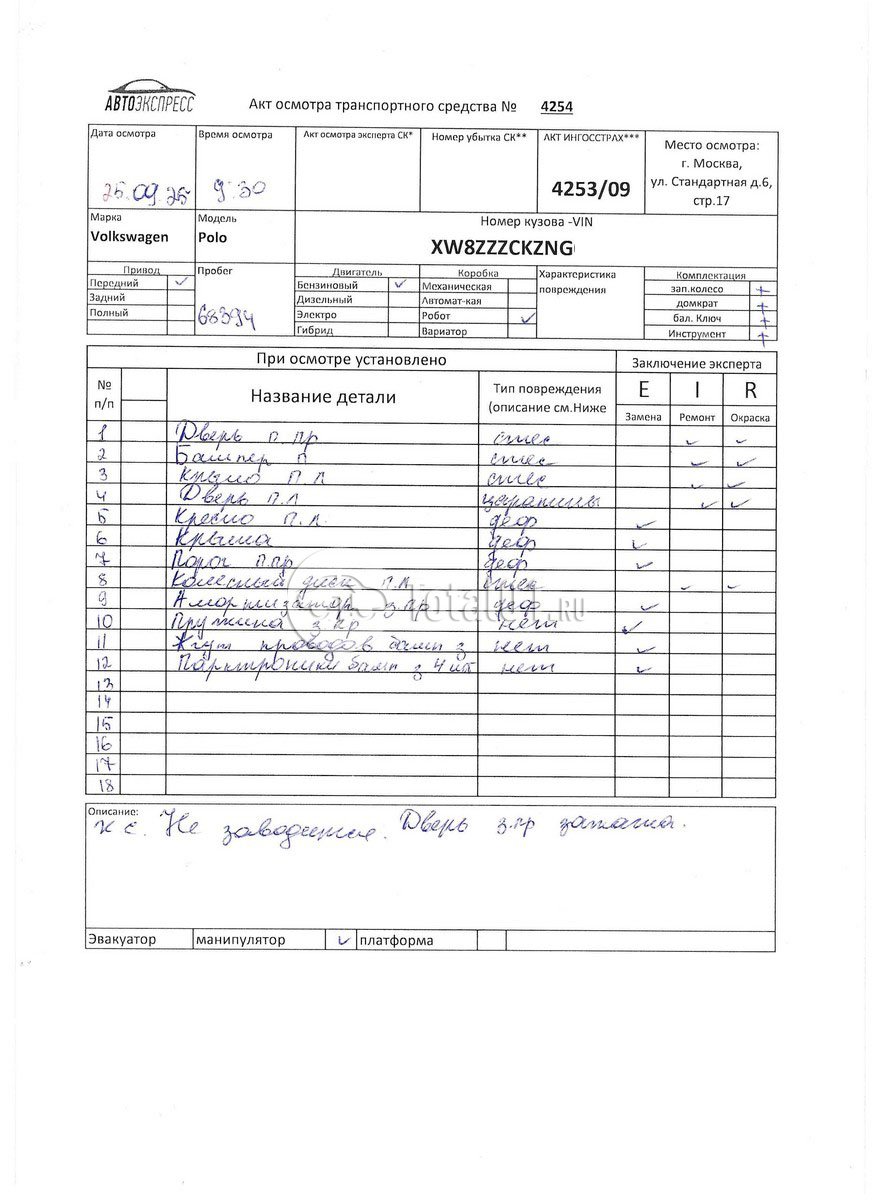 АВТОЭКСПРЕСС
Акт осмотра транспортного средства № 4254
Дата осмотра Время осмотра Акт осмотра эксперта СК* Номер убытка СК** АКТ ИНГОССТРАХ*** Место осмотра:
г. Москва,
25.09.25 9:30 4253/09 ул. Стандартная д.6,
стр.17
Марка Модель Номер кузова -VIN
Volkswagen Polo XW8ZZZCKZNG
Привод Пробег Двигатель Коробка Характеристика Комплектация
Передний ✓ Бензиновый ✓ Механическая повреждения зап.колесо +
Задний 68394 Дизельный Автомат-кая домкрат +
Полный Электро Робот ✓ бал. Ключ +
Гибрид Вариатор Инструмент +
При осмотре установлено Заключение эксперта
№ п/п Название детали Тип повреждения (описание см.Ниже E I R
Замена Ремонт Окраска
1 Дверь п.пр стес ✓ ✓
2 Бампер п стес ✓ ✓
3 Крыло п л стес ✓ ✓
4 Дверь п.л царапины ✓ ✓
5 Кресло п.л. деф ✓
6 Крыша деф ✓
7 Порог п.пр деф ✓
8 Колесный диск п.л стес ✓ ✓
9 Амортизатор з.пр деф ✓
10 Пружина з пр нет ✓
11 Жгут проводов бамп з нет ✓
12 Парктроники бамп з 4 шт нет ✓
13
14
15
16
17
18
TotalKit.RU
Описание:
к с. Не заводится. Дверь з.пр зажата.
Эвакуатор манипулятор ✓ платформа